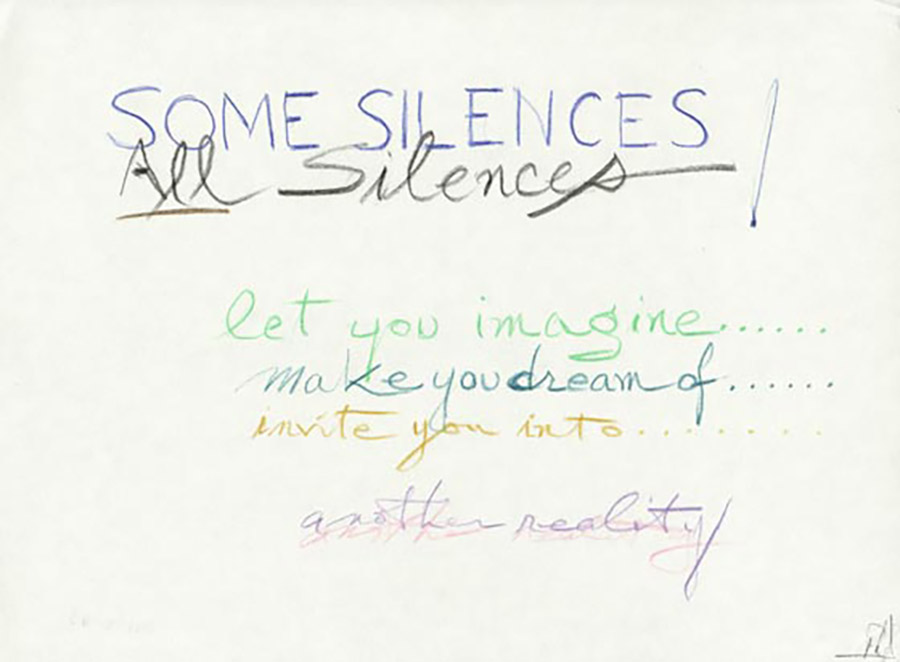 SOME SILENCES /
All Silences
let you imagine......
make you dream of......
invite you into........
another reality/